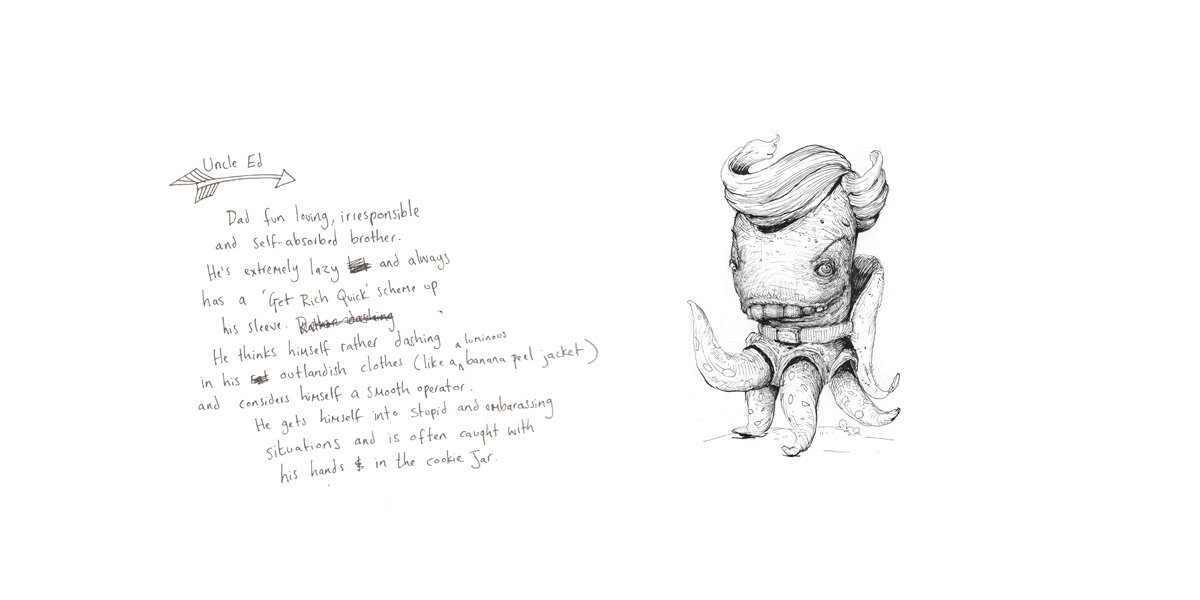 Uncle Ed
Dad fun loving, irresponsible
and self-absorbed brother.
He's extremely lazy and always
has a 'Get Rich Quick' scheme up
his sleeve. Rather dashing
He thinks himself rather dashing
in his outlandish clothes (like a luminous banana peel jacket)
and considers himself a smooth operator.
He gets himself into stupid and embarassing
situations and is often caught with
his hands in the cookie Jar.